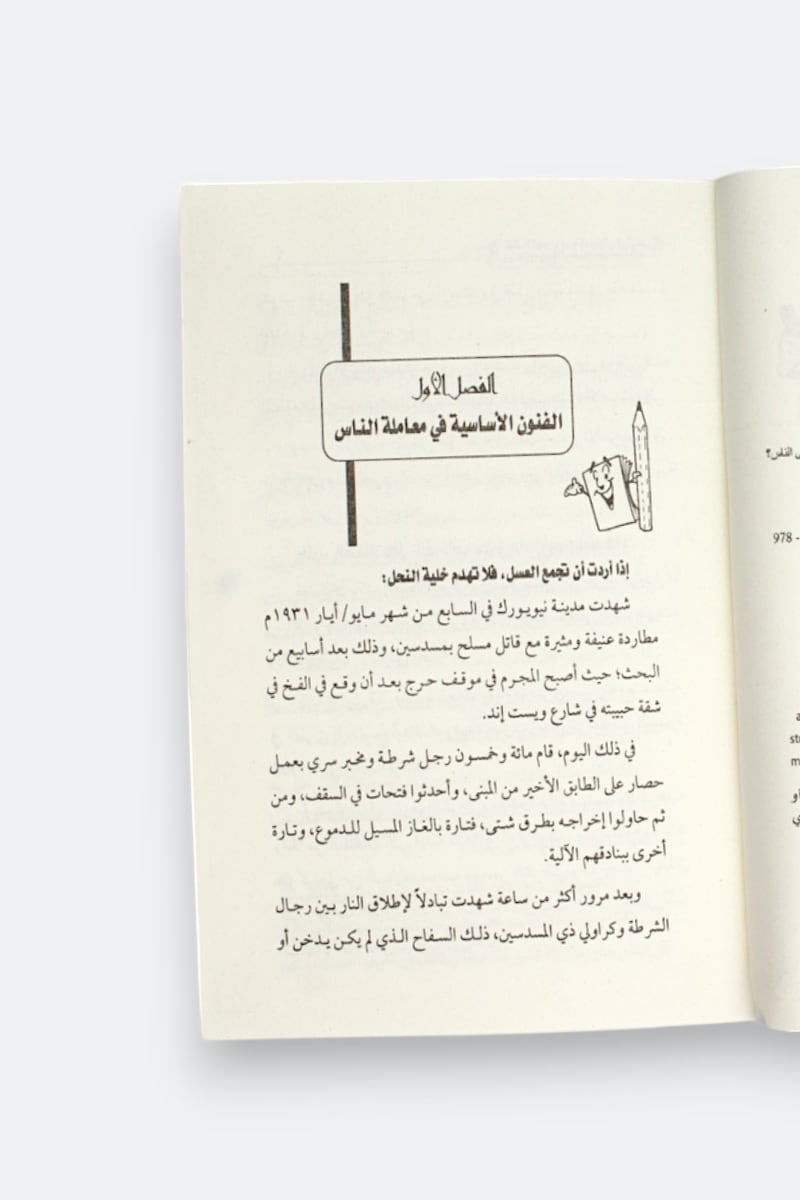 الفصل الأول
الفنون الأساسية في معاملة الناس
إذا أردت أن تجمع العسل، فلا تهدم خلية النحل:
شهدت مدينة نيويورك في السابع من شهر مايو/ أيار ١٩٣١م
مطاردة عنيفة ومثيرة مع قاتل مسلح بمسدسين، وذلك بعد أسابيع من
البحث؛ حيث أصبح المجرم في موقف حرج بعد أن وقع في الفخ في
شقة حبيبته في شارع ويست إند.
في ذلك اليوم، قام مائة وخمسون رجل شرطة ومخبر سري بعمل
حصار على الطابق الأخير من المبنى، وأحدثوا فتحات في السقف، ومن
ثم حاولوا إخراجه بطرق شتى، فتارة بالغاز المسيل للدموع، وتارة
أخرى ببنادقهم الآلية.
وبعد مرور أكثر من ساعة شهدت تبادلاً لإطلاق النار بين رجال
الشرطة وكراولي ذي المسدسين، ذلك السفاح الذي لم يكن يدخن أو
الناس؟
978 -